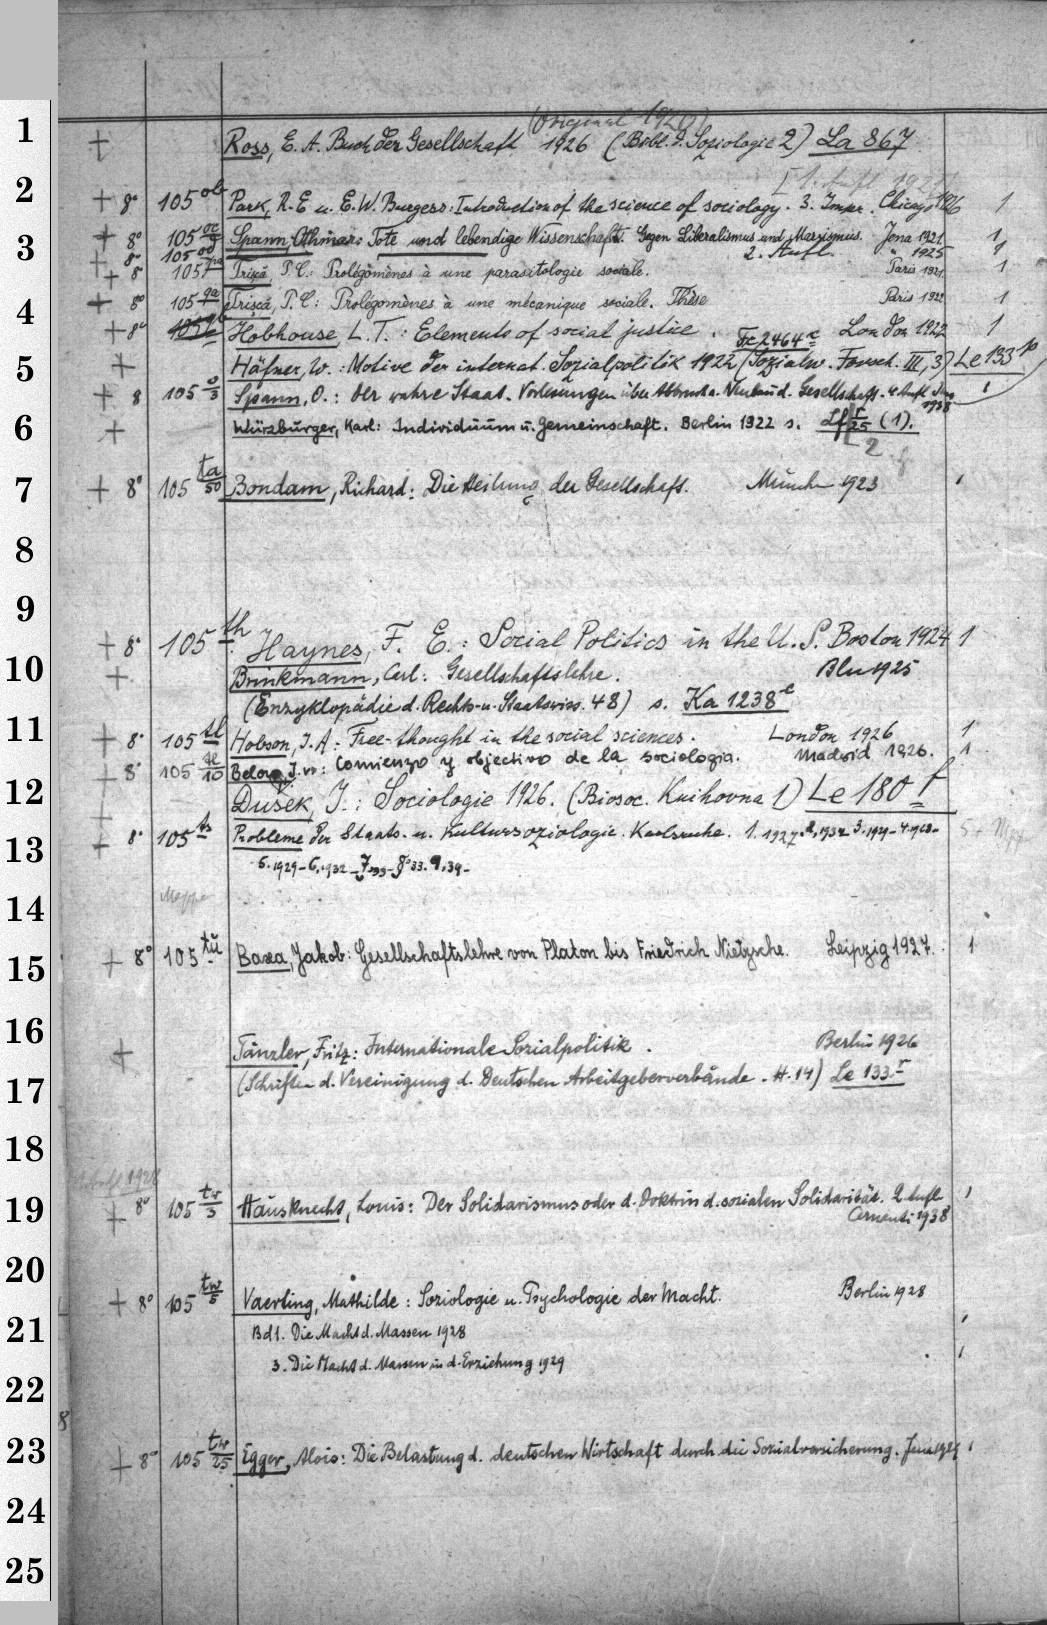 1
(Original 1920)
+ Ross, E. A. Buch der Gesellschaft 1926 (Bibl. d. Soziologie 2) La 867
2
[1. Aufl 192
+ 8° 105 ob Park, R. E u. E. W. Burgess: Introduction of the science of sociology. 3. Impr. Chicago 1926 1
3
+ 8° 105 Spann, Othmar: Tote und lebendige Wissenschaft. Gegen Liberalismus und Marxismus. Jena 1921. 1
+ 8° 105 od 2. Aufl. " 1925 1
+ 8° 105 Trişcă P. C.: Prolégomènes à une parasitologie sociale. Paris 1921. 1
4
+ 8° 105 qa Trişcă, P. C: Prolégomènes à une mécanique sociale. Thèse Paris 1922 1
+ 8° Hobhouse, L. T.: Elements of social justice. Fc 2464 London 1922 1
5
+ Häfner, W.: Motive der internat. Sozialpolitik 1922 (Sozialw. Forsch. III, 3) Le 133 p
+ 8 105 s/3 Spann, O.: Der wahre Staat. Vorlesungen über Abbruch u. Neubau d. Gesellschaft. 4. Aufl Jena 1938 1
6
+ Würzburger, Karl: Individuum u. Gemeinschaft. Berlin 1922 s. Lf r/25 (1).
2
7
+ 8° 105 ta/50 Bondam, Richard: Die Heilung der Gesellschaft. München 1923 1
8
9
+ 8° 105 th Haynes, F. E.: Social Politics in the U. S. Boston 1924 1
10
+ Brinkmann, Carl: Gesellschaftslehre. Bln 1925
(Enzyklopädie d. Rechts- u. Staatswiss. 48) s. Ka 1238 e
11
+ 8° 105 tl Hobson, J. A: Free-thought in the social sciences. London 1926 1
+ 8° 105 J. v: Comienzo y objectivo de la sociologia. Madrid 1926. 1
12
+ Dušek, J.: Sociologie 1926. (Biosoc. Knihovna 1) Le 180 f
+ 8° 105 ts Probleme der Staats- u. Kultursoziologie. Karlsruhe. 1. 1927
13
5. 1929- 6. 1932 - 7. 8° 33. 9. 39-
Mappe
14
+ 8° 105 tü Baxa, Jakob: Gesellschaftslehre von Platon bis Friedrich Nietzsche. Leipzig 1927. 1
15
16
+ Tänzler, Fritz: Internationale Sozialpolitik. Berlin 1926
17
(Schriften d. Vereinigung d. Deutschen Arbeitgeberverbände. H. 14) Le 133 r
18
1928
+ 8° 105 Hausknecht, Louis: Der Solidarismus oder d. Doktrin d. sozialen Solidarität. 2. Aufl. 1
19
Cernauti 1938
20
+ 8° 105 tw/5 Vaerting, Mathilde: Soziologie u. Psychologie der Macht. Berlin 1928
21
Bd 1. Die Macht d. Massen 1928 1
3. Die Macht d. Massen in d. Erziehung 1929 1
22
23
+ 8° 105 tw/25 Egger, Alois: Die Belastung d. deutschen Wirtschaft durch die Sozialversicherung. Jena 1929 1
24
25